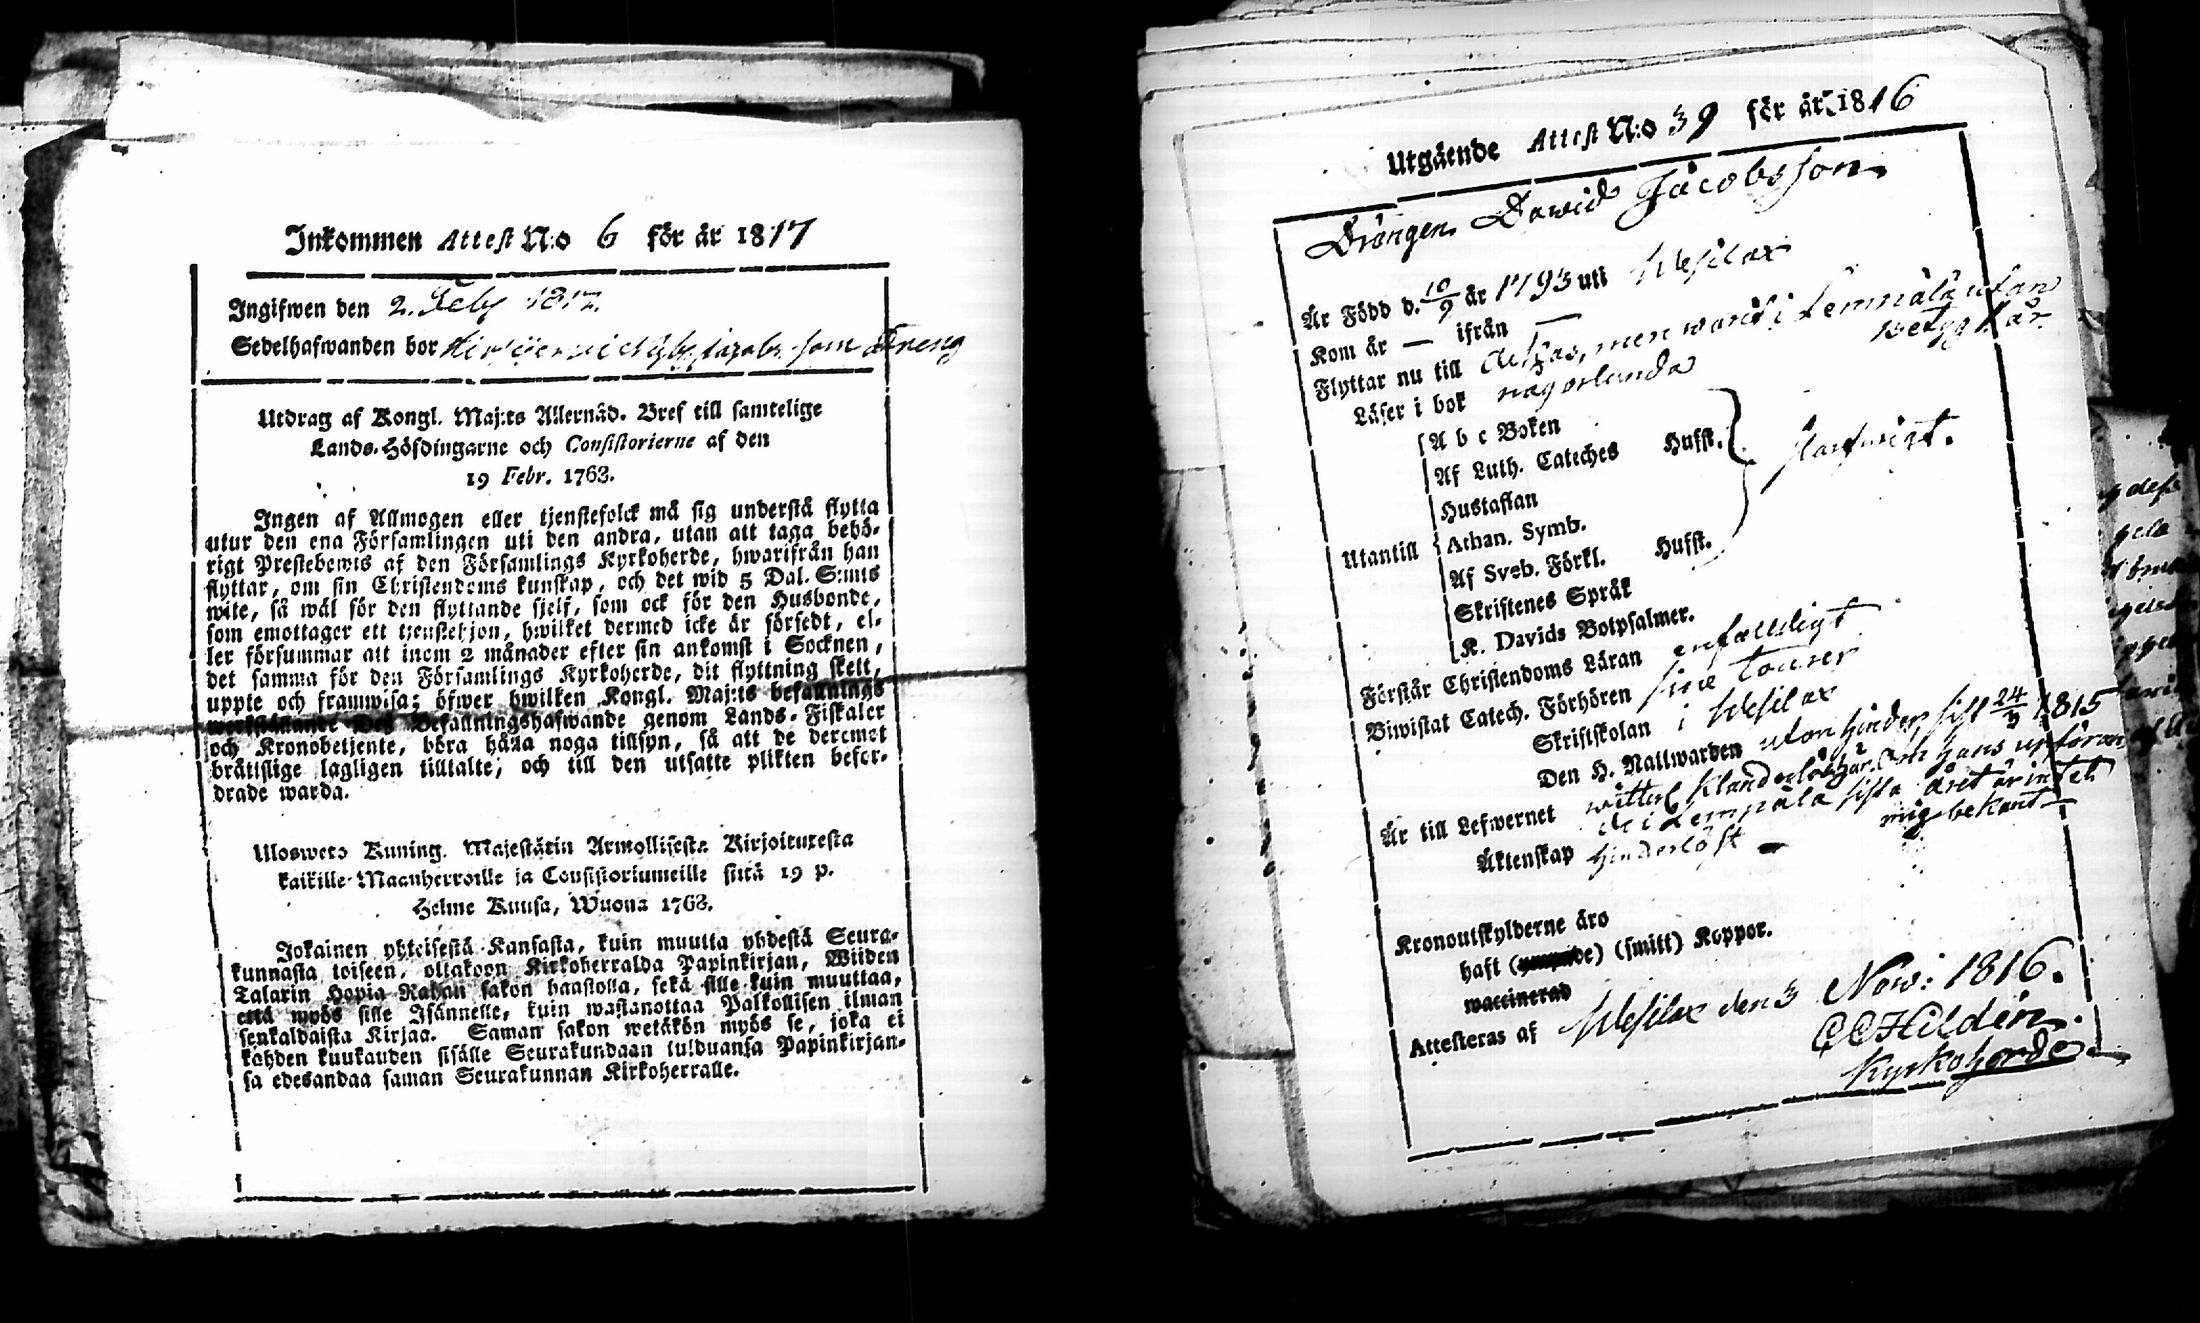 Inkommen Attest N:o 6 för år 1817
Ingifwen den 2. Feb 1817.
Sedelhafwanden bor som Dreng
Utdrag af Kongl. Maj:ts Allernåd. Bref till samtelige
Lands-Höfdingarne och Consistorierne af den
19 Febr. 1763.
Ingen af Allmogen eller tjenstefolck må sig understå flytta
utur den ena Församlingen uti den andra, utan att taga behö-
rigt Prestebewis af den Församlings Kyrkoherde, hwarifrån han
flyttar, om sin Christendoms kunskap, och det wid 5 Dal. S:mts
wite, så wäl för den flyttande sjelf, som ock för den Husbonde,
som emottager ett tjenstehjon, hwilket dermed icke är försedt, el-
ler försummar att inom 2 månader efter sin ankomst i Socknen,
det samma för den Församlings Kyrkoherde, dit flyttning skett,
uppte och framwisa; öfwer hwilken Kongl. Maj:ts befallnings
Befallningshafwande genom Lands-Fiskaler
och Kronobetjente, böra hålla noga tillsyn, så att de deremot
bråttslige lagligen tilltalte, och till den utsatte plikten befor-
drade warda.
Uloswero Kuning. Majestätin Armollisesta Kirjoituxesta
kaikille Maanherroille ja Consistoriumeille siitä 19 p.
Helme Kuusa, Wuona 1763.
Jokainen yhteisestä Kansasta, kuin muutta yhdestä Seura-
kunnasta toiseen, ottakoon Kirkoherralda Papinkirjan, Wiiden
Talarin Hopia Rahan sakon haastolla, sekä sille kuin muuttaa,
että myös sille Isännelle, kuin wastanottaa Palkollisen ilman
senkaldaista Kirjaa. Saman sakon wetäkön myös se, joka ei
kahden kuukauden sisälle Seurakundaan tulduansa Papinkirjan-
sa edesandaa saman Seurakunnan Kirkoherralle.
Utgående Attest N:o 39 för år 1816
Drängen David Jacobsson
Är Född d. 10/9 år 1793 uti Wesilax
Kom år — ifrån —
Flyttar nu till men warit i Lempälä utan
betyg 1 år.
Läser i bok någorlunda
A b c Boken
Af Luth. Cateches Hufst.
Hustaflan
Utantill Athan. Symb.
Af Sveb. Förkl. Hufst.
Skriftenes Språk
K. Davids Botpsalmer.
Förstår Christendoms Läran enfalldigt
Biwistat Catech. Förhören sine tourer
Skriftskolan i Wesilax
Den H. Nattwarden utan hinder, sist 24/3 1815
Är till Lefwernet witterl. klanderlös här. Om hans upföran
de i Lempälä sista året är intet
mig bekant
Äktenskap hinderlöst —
Kronoutskylderne äro
haft (de) (smitt) Koppor.
waccinerad
Attesteras af Wesilax den 3 Now: 1816.
CC Hildén
Kyrkoherde